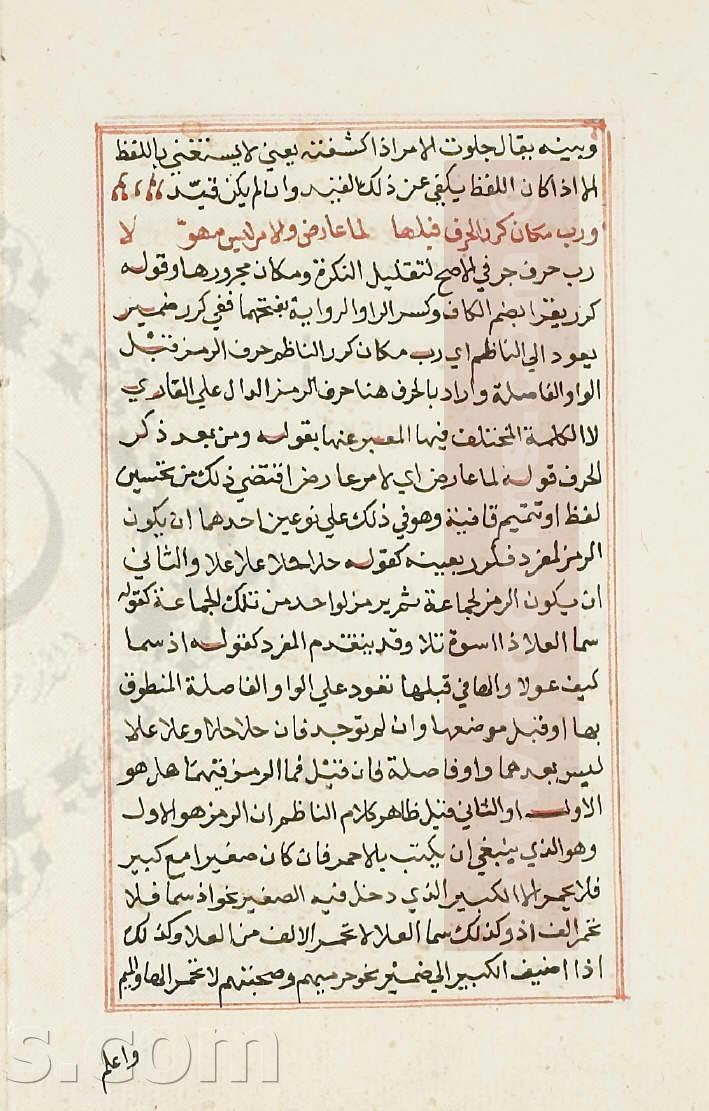 وبينه يقال جلوت الامر اذا كشفته يعني لا يستغني باللفظ
الا اذا كان اللفظ يكفي عن ذلك القيد وان لم يكن قيد
ورب مكان كرر الحرف قبلها لما عارض والامر ليس مهولا
رب حرف جر في الاصح لتقليل النكرة ومكان مجرورها وقوله
كرر يقرا بضم الكاف وكسر الراء والرواية بفتحهما ففي كرر ضمير
يعود الي الناظم اي رب مكان كرر الناظم حرف الرمز قبل
الواو الفاصلة واراد بالحرف هنا حرف الرمز الدال علي القاري
لا الكلمة المختلف فيها المعبر عنها بقوله ومن بعد ذكر
الحرف قوله لما عارض اي لامر عارض اقتضي ذلك من تحسين
لفظ او تتميم قافية وهو في ذلك علي نوعين احدهما ان يكون
الرمز لمفرد فكرر بعينه كقوله حلا حلا علا علا والثاني
ان يكون الرمز لجماعة ثم يرمز لواحد من تلك الجماعة كقوله
سما العلا ذا اسوة تلا وقد يتقدم المفرد كقوله اذ سما
كيف عولا والها في قبلها تعود علي الواو الفاصلة المنطوق
بها او قبل موضعها وان لم توجد فان حلا حلا وعلا علا
ليس بعدهما واو فاصلة فان قيل فما الرمز فيهما هل هو
الاول او الثاني قيل ظاهر كلام الناظم ان الرمز هو الاول
وهو الذي ينبغي ان يكتب بالاحمر فان كان صغيرا مع كبير
فلا يحمر الا الكبير الذي دخل فيه الصغير نحو اذ سما فلا
تحمر الف اذ وكذلك سما العلا لا تحمر الالف من العلا وكذلك
اذا اضيف الكبير الي ضمير نحو حرميهم وصحبتهم لا تحمر الها والميم
واعلم